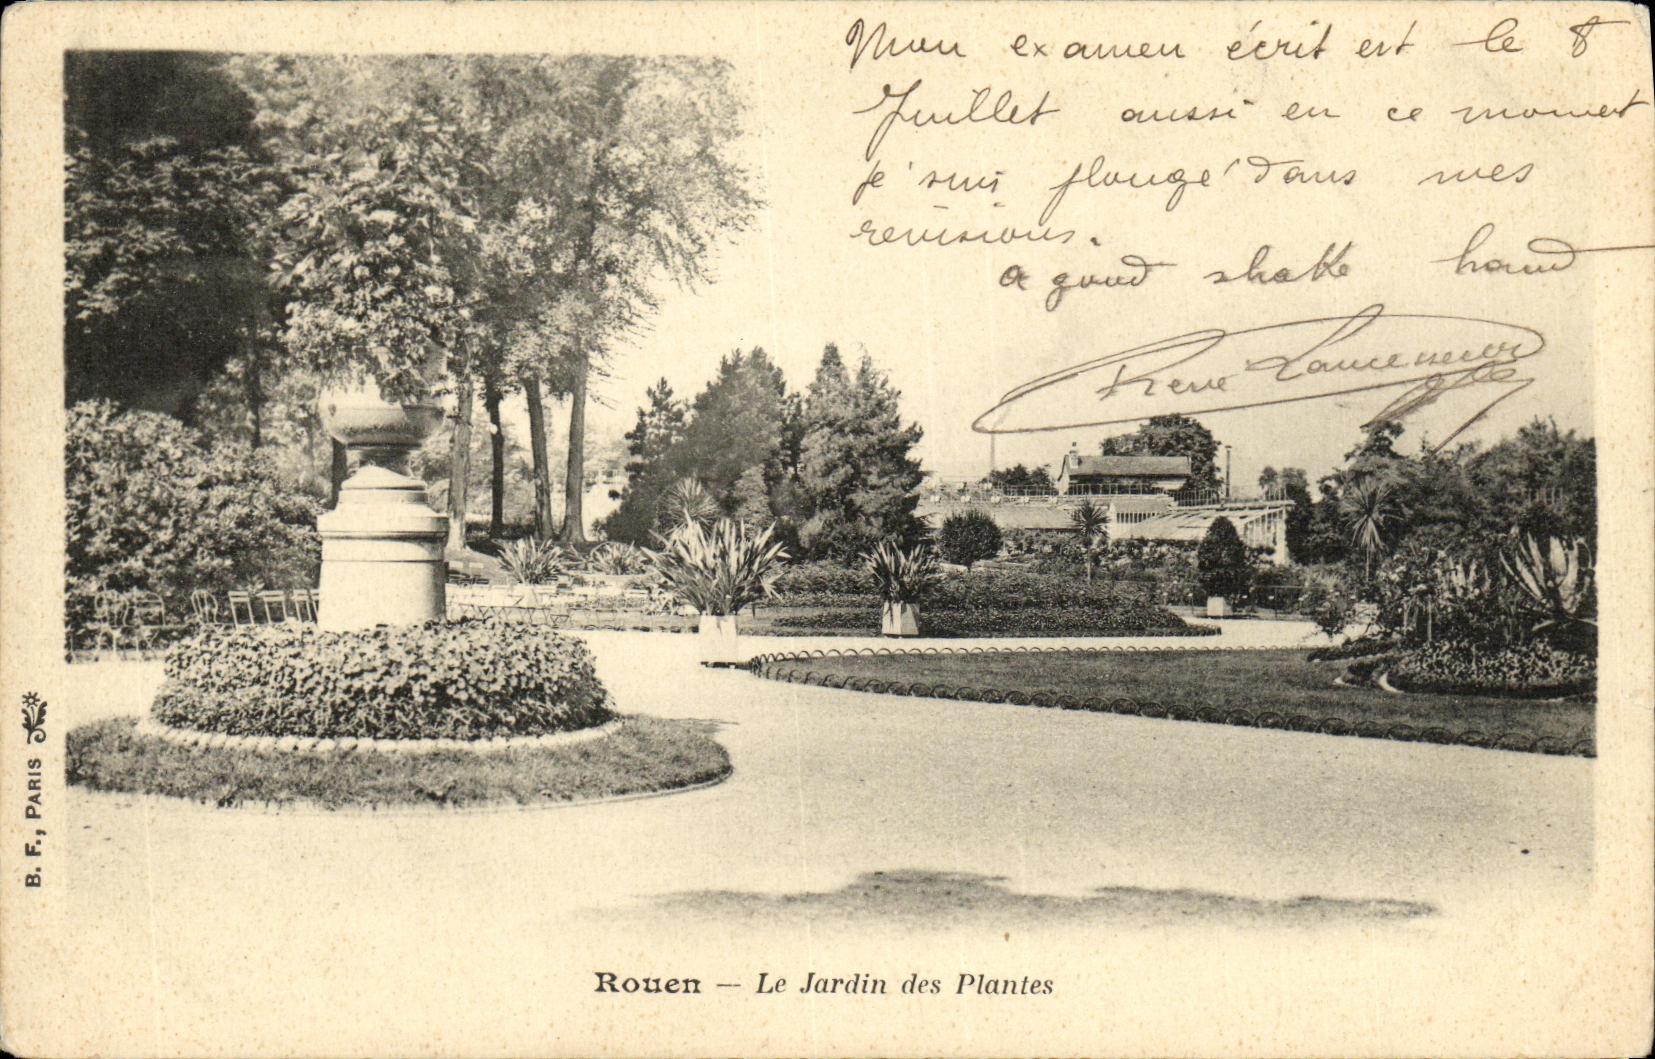 Mon examen écrit est le 8
Juillet aussi en ce moment
je suis plongé dans mes
revisions.
a good shake hand
René
B. F., PARIS
Rouen — Le Jardin des Plantes